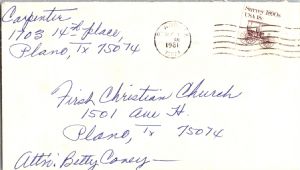 Carpenter
1703 14th place,
Plano, Tx 75074
1981
Surrey 1890s
USA 18c
First Christian Church
1501 Ave H.
Plano, Tx 75074
Attn: Betty Coney